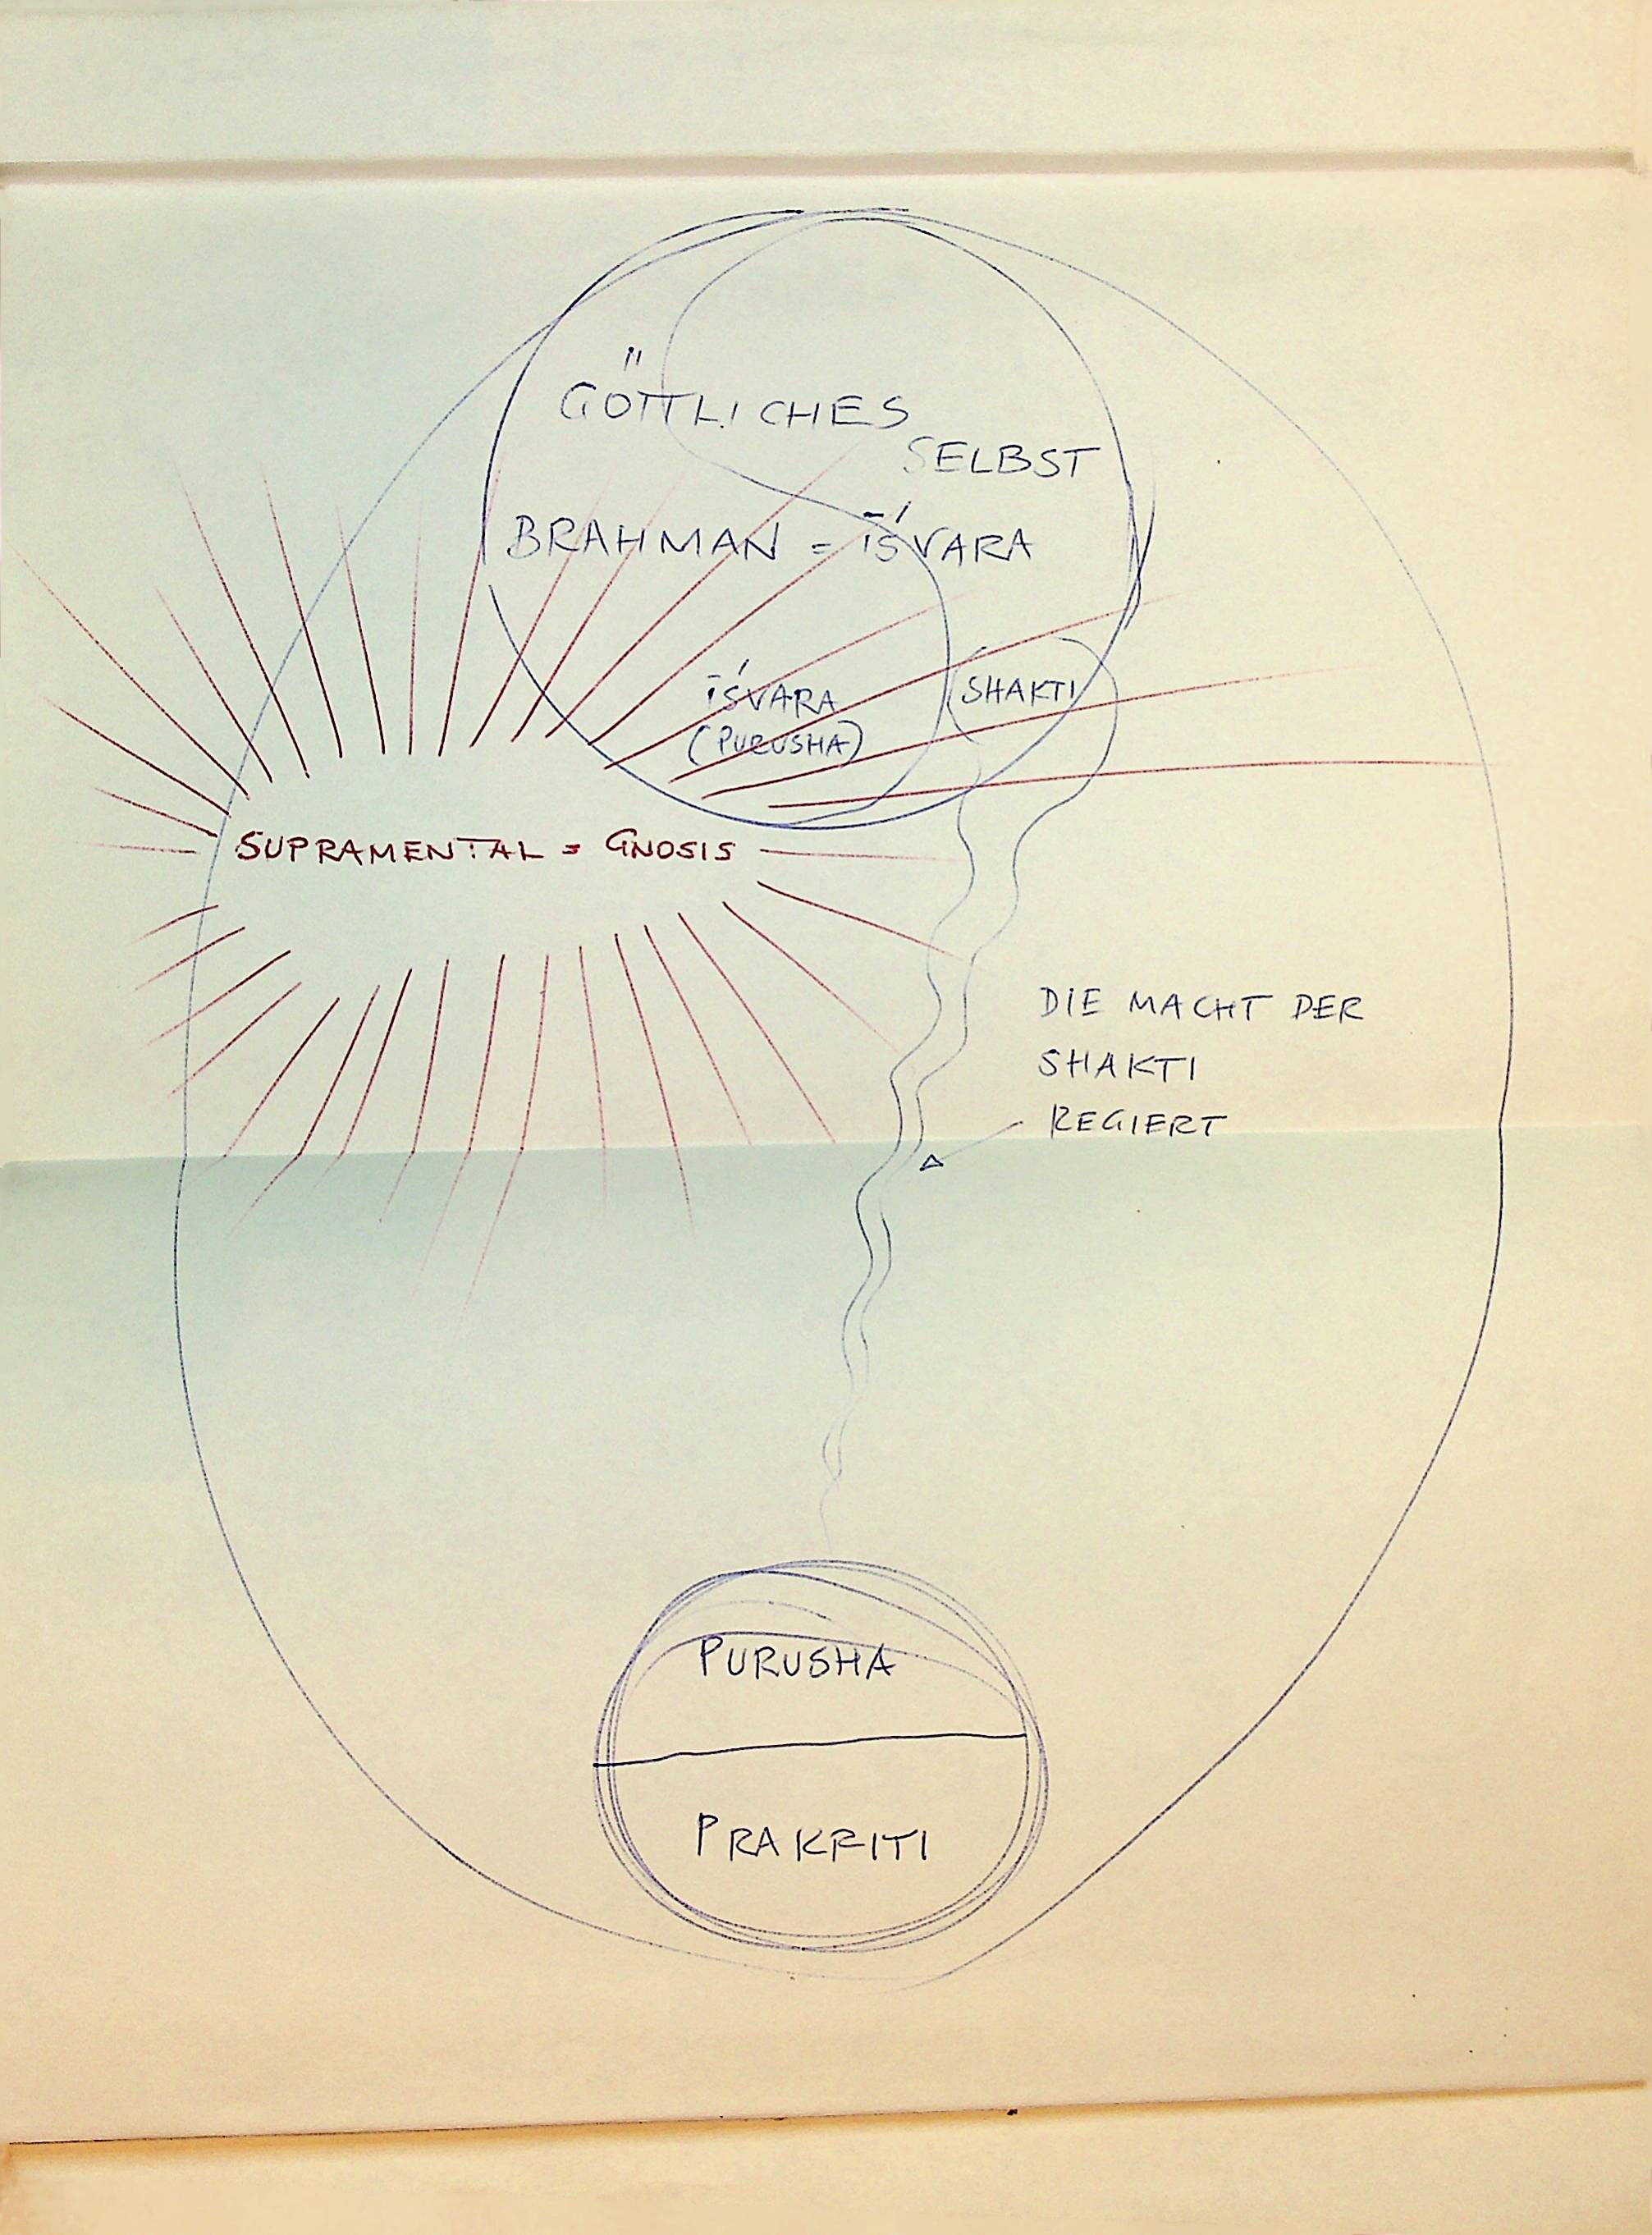 GÖTTLICHES
SELBST
BRAHMAN = ĪŚVARA
ĪŚVARA
(PURUSHA)
SHAKTI
SUPRAMENTAL = GNOSIS
DIE MACHT DER
SHAKTI
REGIERT
PURUSHA
PRAKRITI